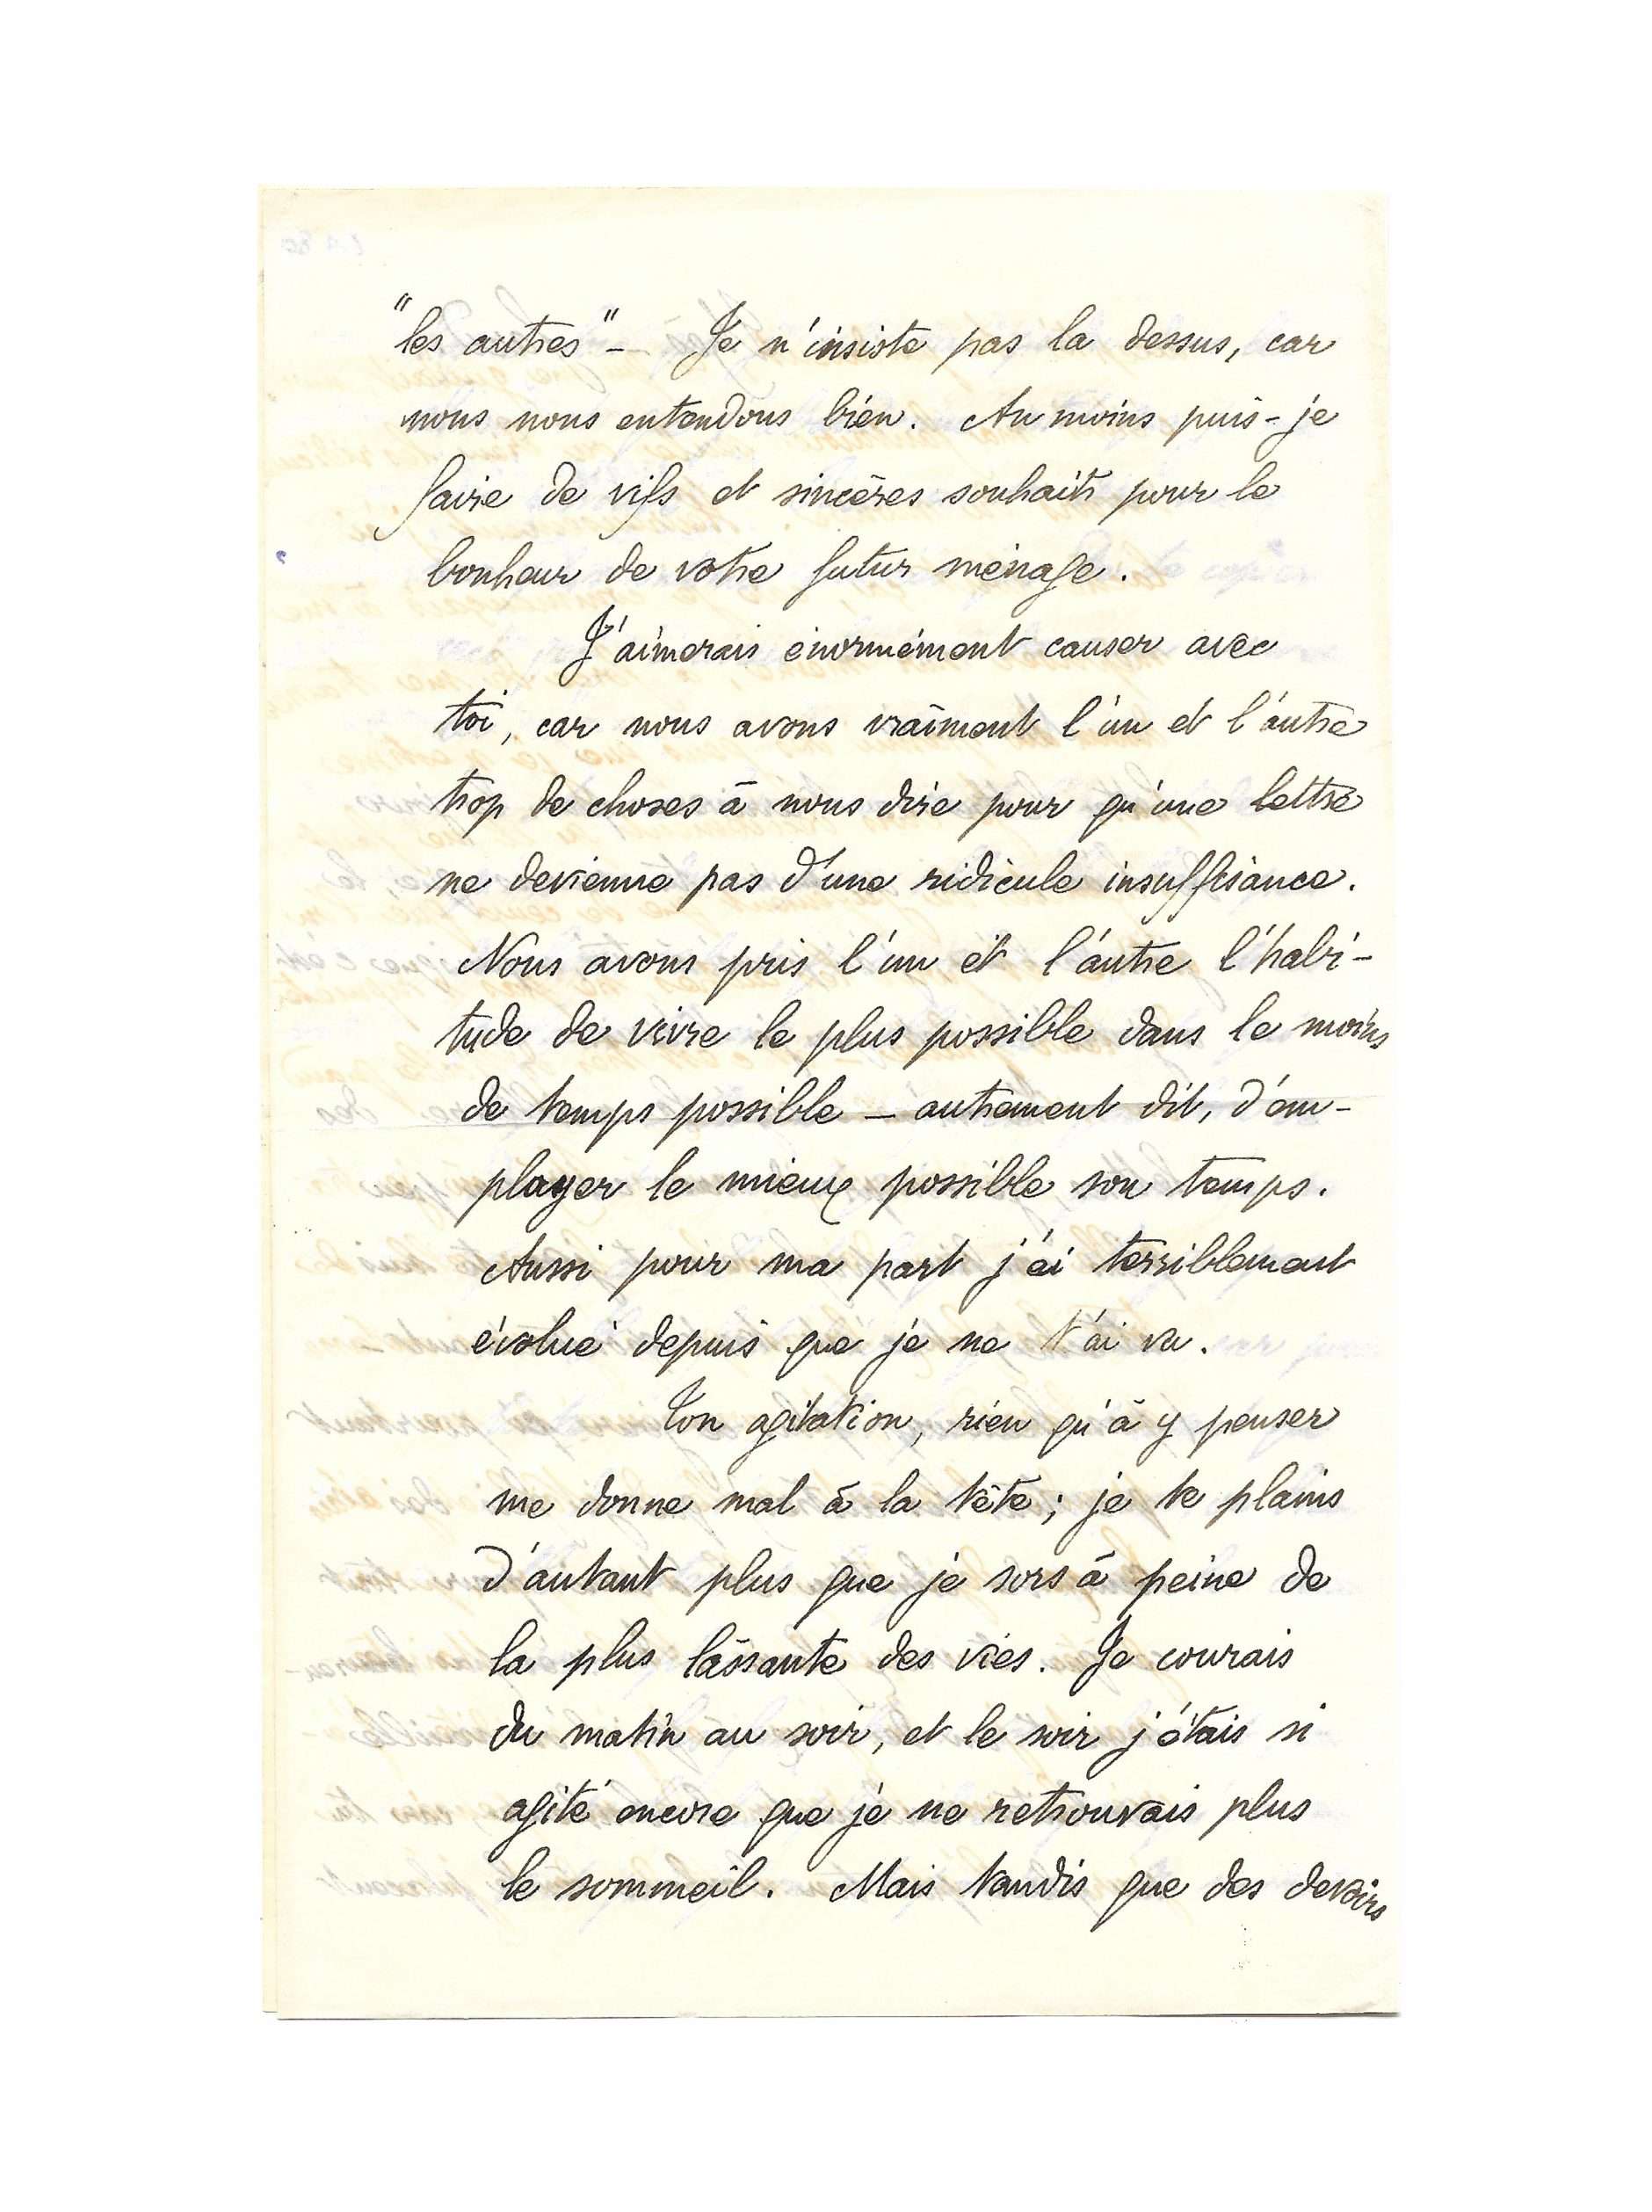 "les autres" – Je n'insiste pas la dessus, car
nous nous entendons bien. Au moins puis-je
faire de vifs et sincères souhaits pour le
bonheur de votre futur ménage.
J'aimerais énormément causer avec
toi, car nous avons vraiment l'un et l'autre
trop de choses à nous dire pour qu'une lettre
ne devienne pas d'une ridicule insuffisance.
Nous avons pris l'un et l'autre l'habi-
tude de vivre le plus possible dans le moins
de temps possible – autrement dit, d'em-
ployer le mieux possible son temps.
Aussi pour ma part j'ai terriblement
évolué depuis que je ne t'ai vu.
Ton agitation, rien qu'à y penser
me donne mal à la tête ; je te plains
d'autant plus que je sors à peine de
la plus lassante des vies. Je courais
du matin au soir, et le soir j'étais si
agité encore que je ne retrouvais plus
le sommeil. Mais tandis que des devoirs